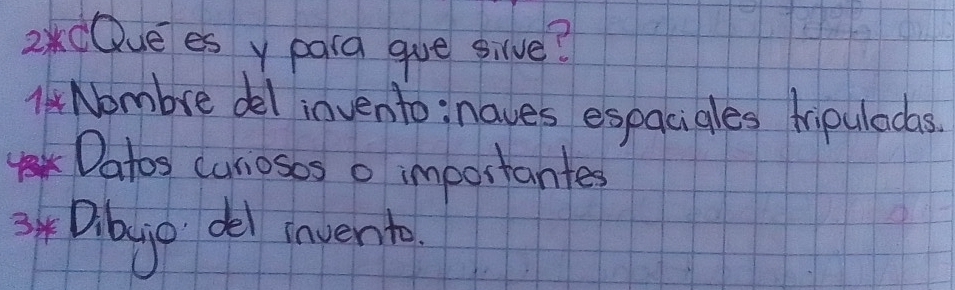 2*¿Qué es y para que sirve?
1*Nombre del invento: naves espaciales tripuladas.
4* Datos curiosos o importantes
3* Dibujo del invento.